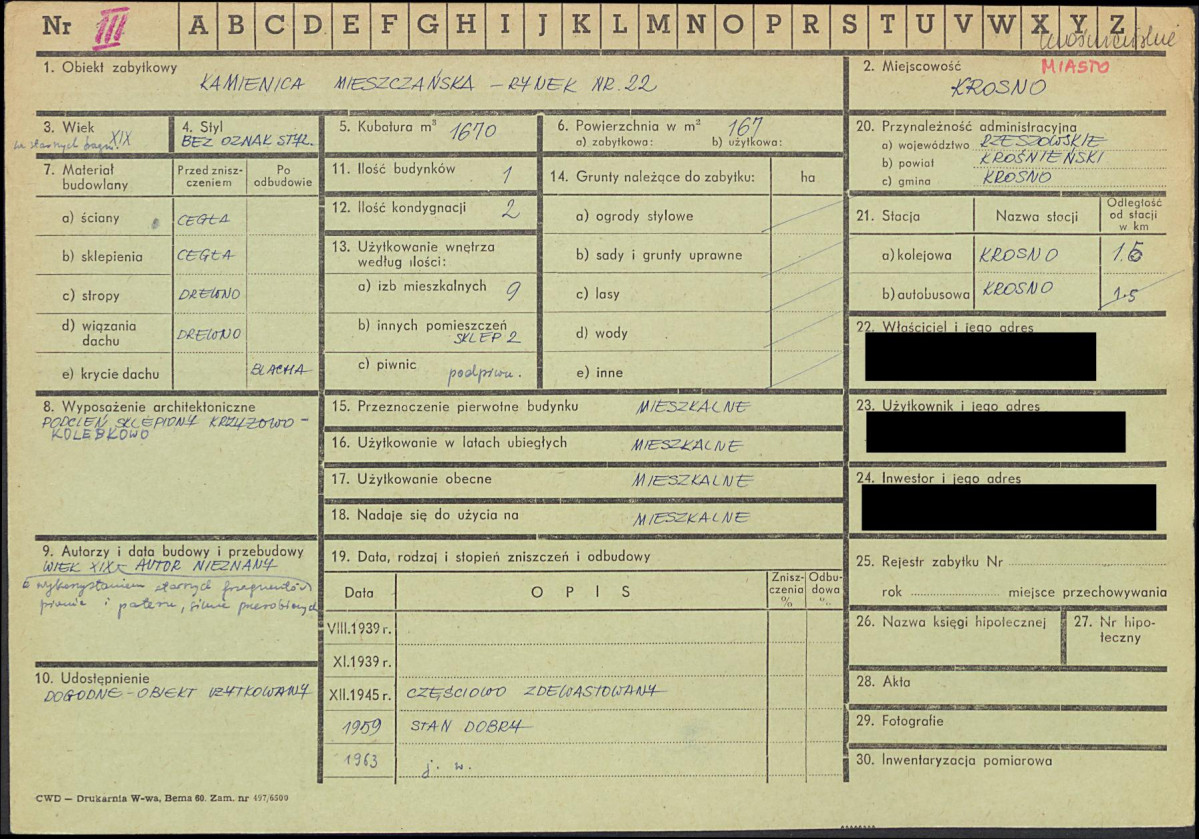 Nr III A B C D E F G H I J K L M N O P R S T U V W X Y Z
1. Obiekt zabytkowy
KAMIENICA MIESZCZAŃSKA – RYNEK NR. 22
2. Miejscowość MIASTO
KROSNO
3. Wiek XIX
4. Styl
BEZ OZNAK STYL.
5. Kubatura m³ 1670
6. Powierzchnia w m² 167
a) zabytkowa: b) użytkowa:
7. Materiał budowlany
Przed zniszczeniem
Po odbudowie
a) ściany CEGŁA
b) sklepienia CEGŁA
c) stropy DREWNO
d) wiązania dachu DREWNO
e) krycie dachu BLACHA
8. Wyposażenie architektoniczne
PODCIEŃ SKLEPIONY KRZYŻOWO –
KOLEBKOWO
9. Autorzy i data budowy i przebudowy
WIEK XIX AUTOR NIEZNANY
z wykorzystaniem starych fragmentów
piwnic i parteru, silnie przerobionych
10. Udostępnienie
DOGODNE – OBIEKT UŻYTKOWANY
11. Ilość budynków 1
12. Ilość kondygnacji 2
13. Użytkowanie wnętrza
według ilości:
a) izb mieszkalnych 9
b) innych pomieszczeń
SKLEP 2
c) piwnic podpiwn.
14. Grunty należące do zabytku: ha
a) ogrody stylowe
b) sady i grunty uprawne
c) lasy
d) wody
e) inne
15. Przeznaczenie pierwotne budynku MIESZKALNE
16. Użytkowanie w latach ubiegłych MIESZKALNE
17. Użytkowanie obecne MIESZKALNE
18. Nadaje się do użycia na MIESZKALNE
19. Data, rodzaj i stopień zniszczeń i odbudowy
Data OPIS Zniszczenia % Odbudowa %
VIII.1939 r.
XI.1939 r.
XII.1945 r. CZĘŚCIOWO ZDEWASTOWANY
1959 STAN DOBRY
1963 j. w.
20. Przynależność administracyjna
a) województwo RZESZOWSKIE
b) powiat KROŚNIEŃSKI
c) gmina KROSNO
21. Stacja Nazwa stacji Odległość od stacji w km
a) kolejowa KROSNO 1.5
b) autobusowa KROSNO 1.5
22. Właściciel i jego adres
23. Użytkownik i jego adres
24. Inwestor i jego adres
25. Rejestr zabytku Nr
rok miejsce przechowywania
26. Nazwa księgi hipotecznej
27. Nr hipoteczny
28. Akta
29. Fotografie
30. Inwentaryzacja pomiarowa
CWD — Drukarnia W-wa, Bema 60. Zam. nr 497/6500